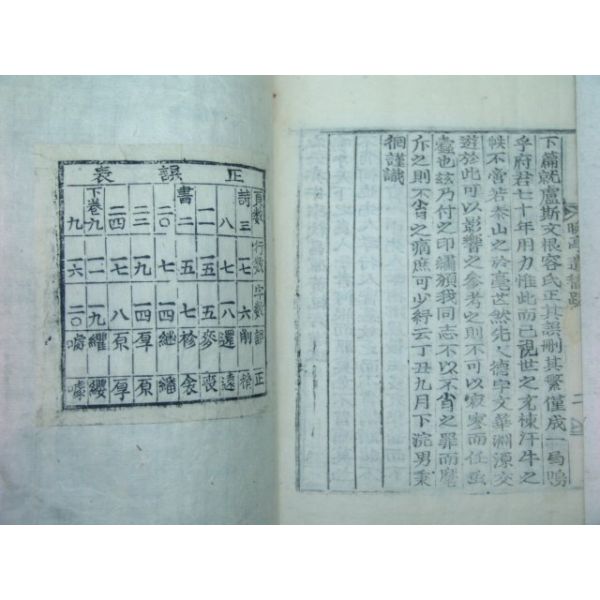 下篇就盧斯文根容氏正其誤刪其繁僅成一局嗚
乎府君七十年用力惟此而已視世之充棟汗牛之
帙不啻若泰山之於毫芒然先人德字文華淵源交
遊於此可以影響之參考之則不可以寂寥而任函
蠹也玆乃付之印繡願我同志不以不肖之罪而麾
斥之則不肖之痛庶可少紓云丁丑九月下浣男秉
徊謹識
遺稿跋 二
正誤表
頁數 行數 字數 誤 正
詩三 一七 六 剛
八 七 一八 還 遠
一一 一五 五 麥 喪
書二 五 七 袗 衾
二〇 七 一四 繼 繙
二三 一九 一四 厚 原
二四 一七 八 原 厚
下卷九 一一 一九 纓
九 一六 二〇